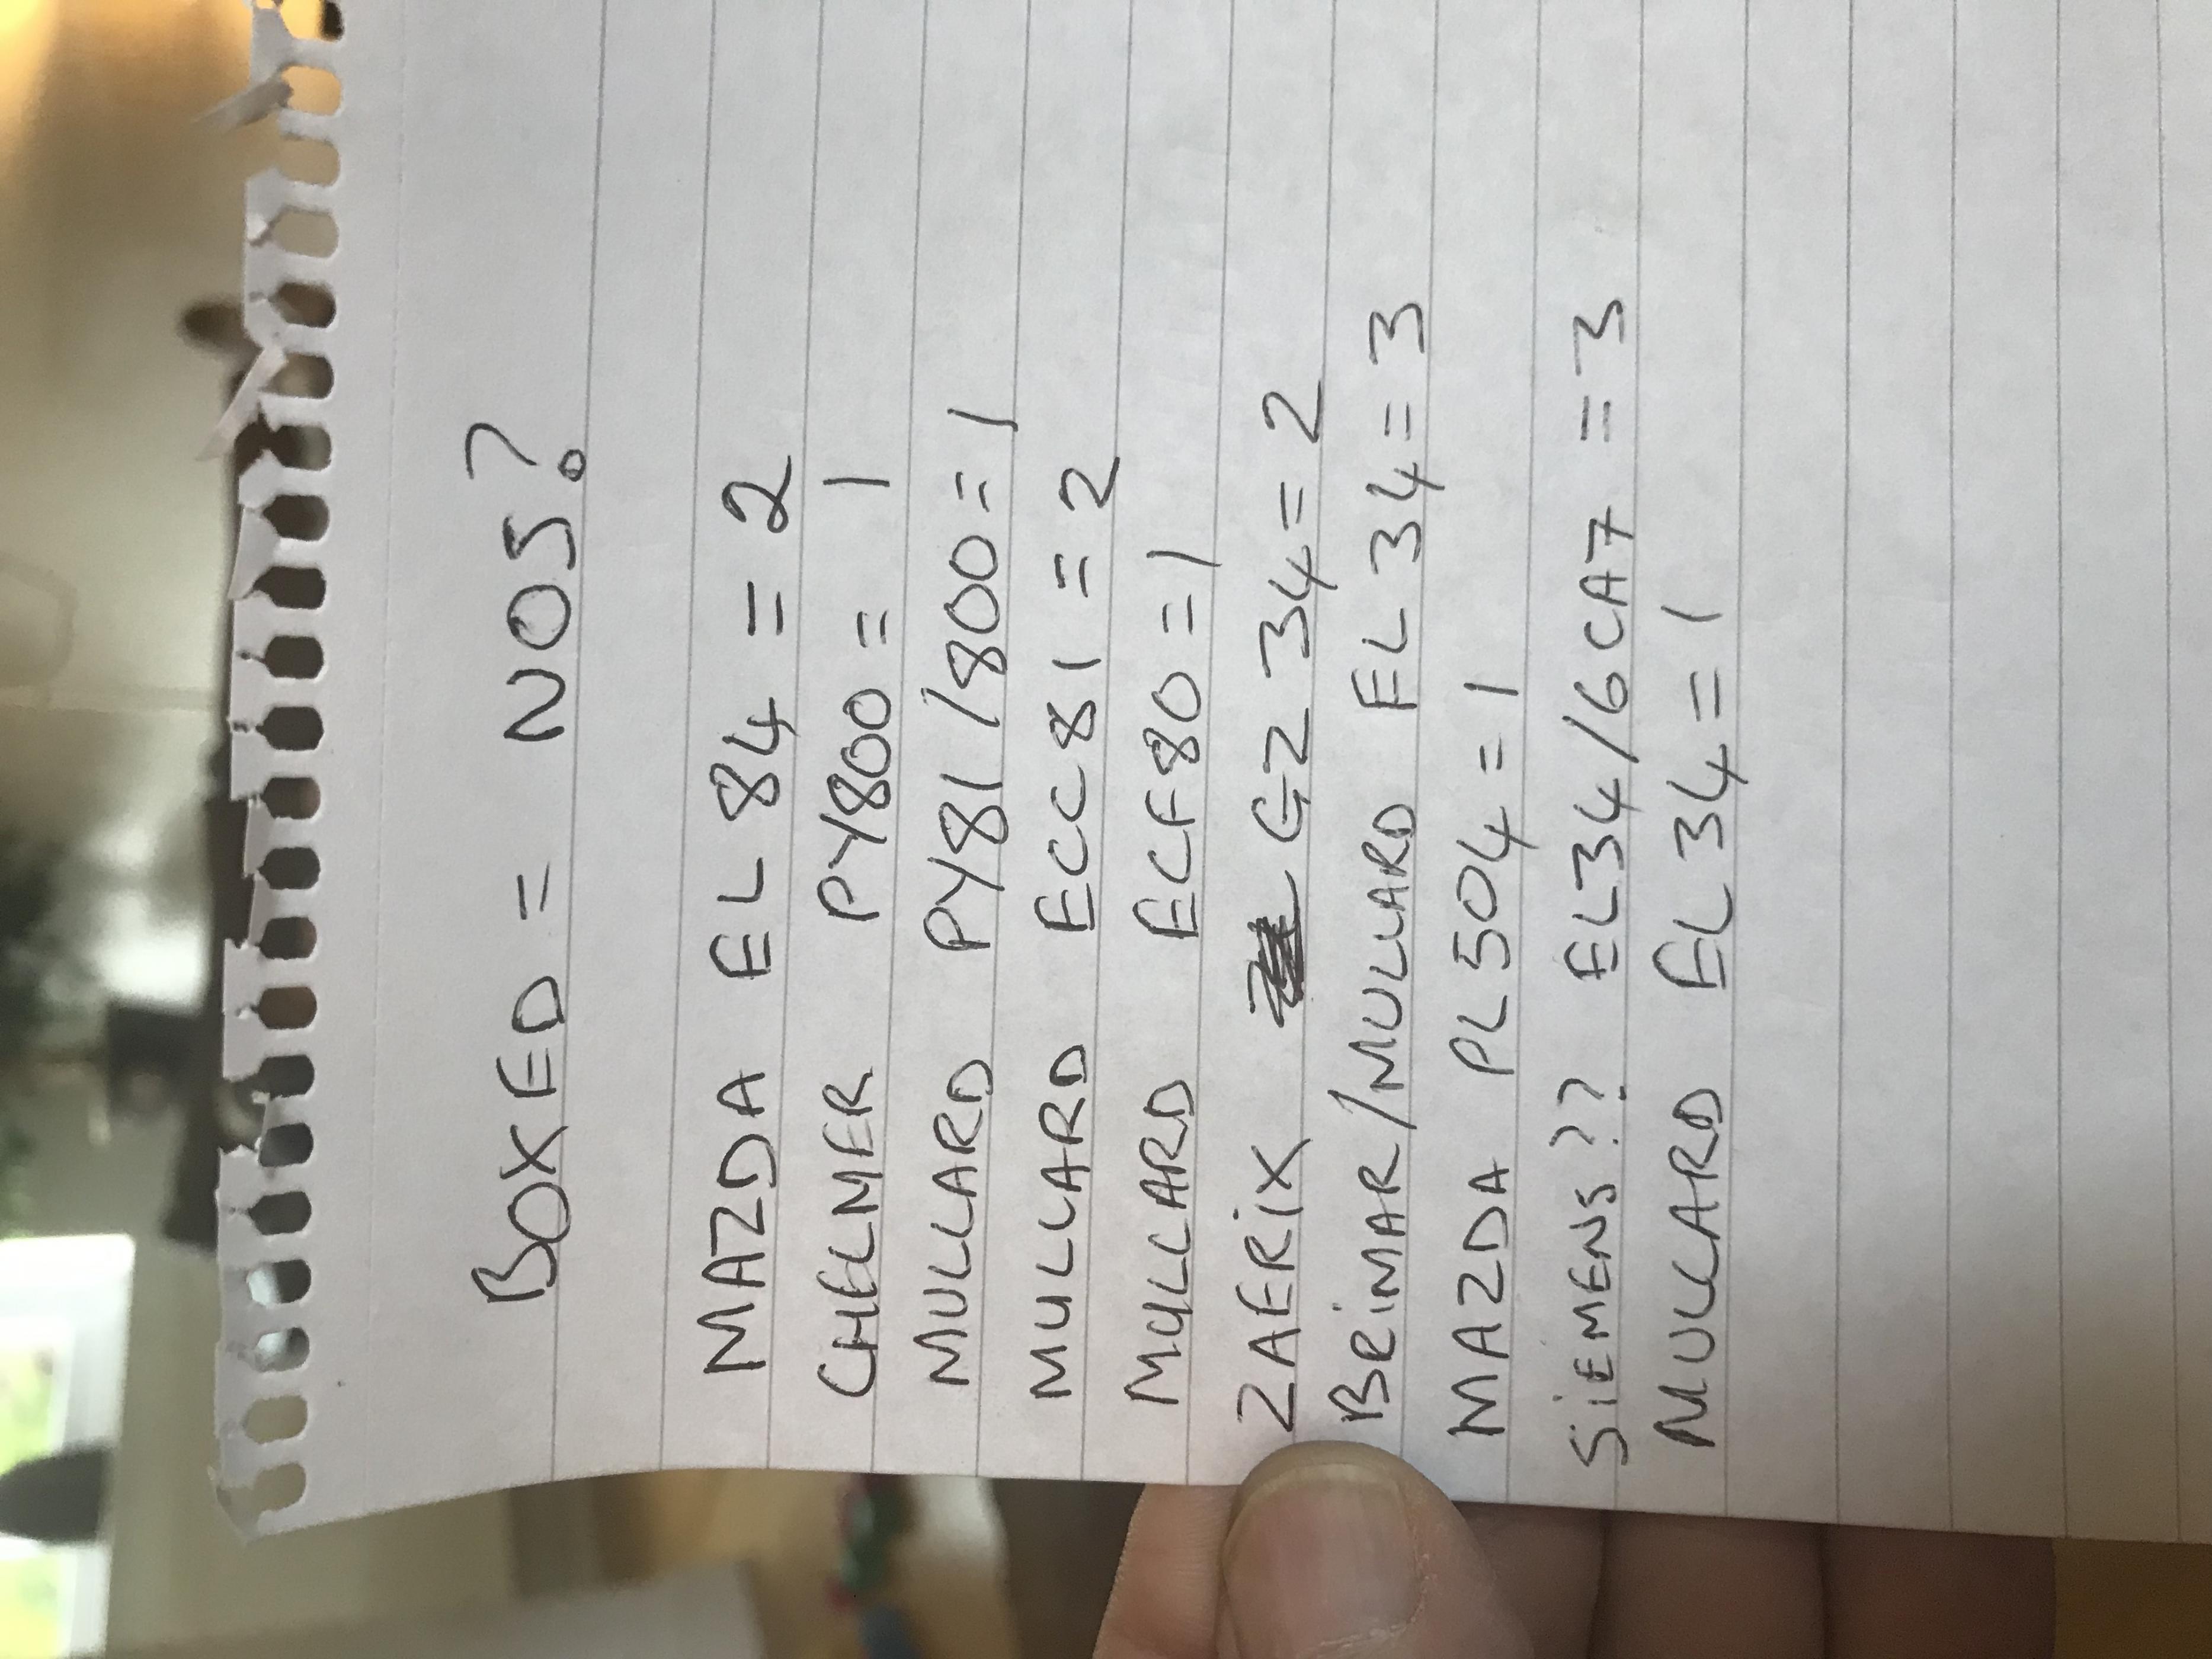 BOXED = NOS?
MAZDA EL84 = 2
CHELMER PY800 = 1
MULLARD PY81/800 = 1
MULLARD ECC81 = 2
MULLARD ECF80 = 1
ZAERIX GZ34 = 2
BRiMAR/MULLARD EL34 = 3
MAZDA PL504 = 1
SiEMENS?? EL34/6CA7 = 3
MULLARD EL34 = 1